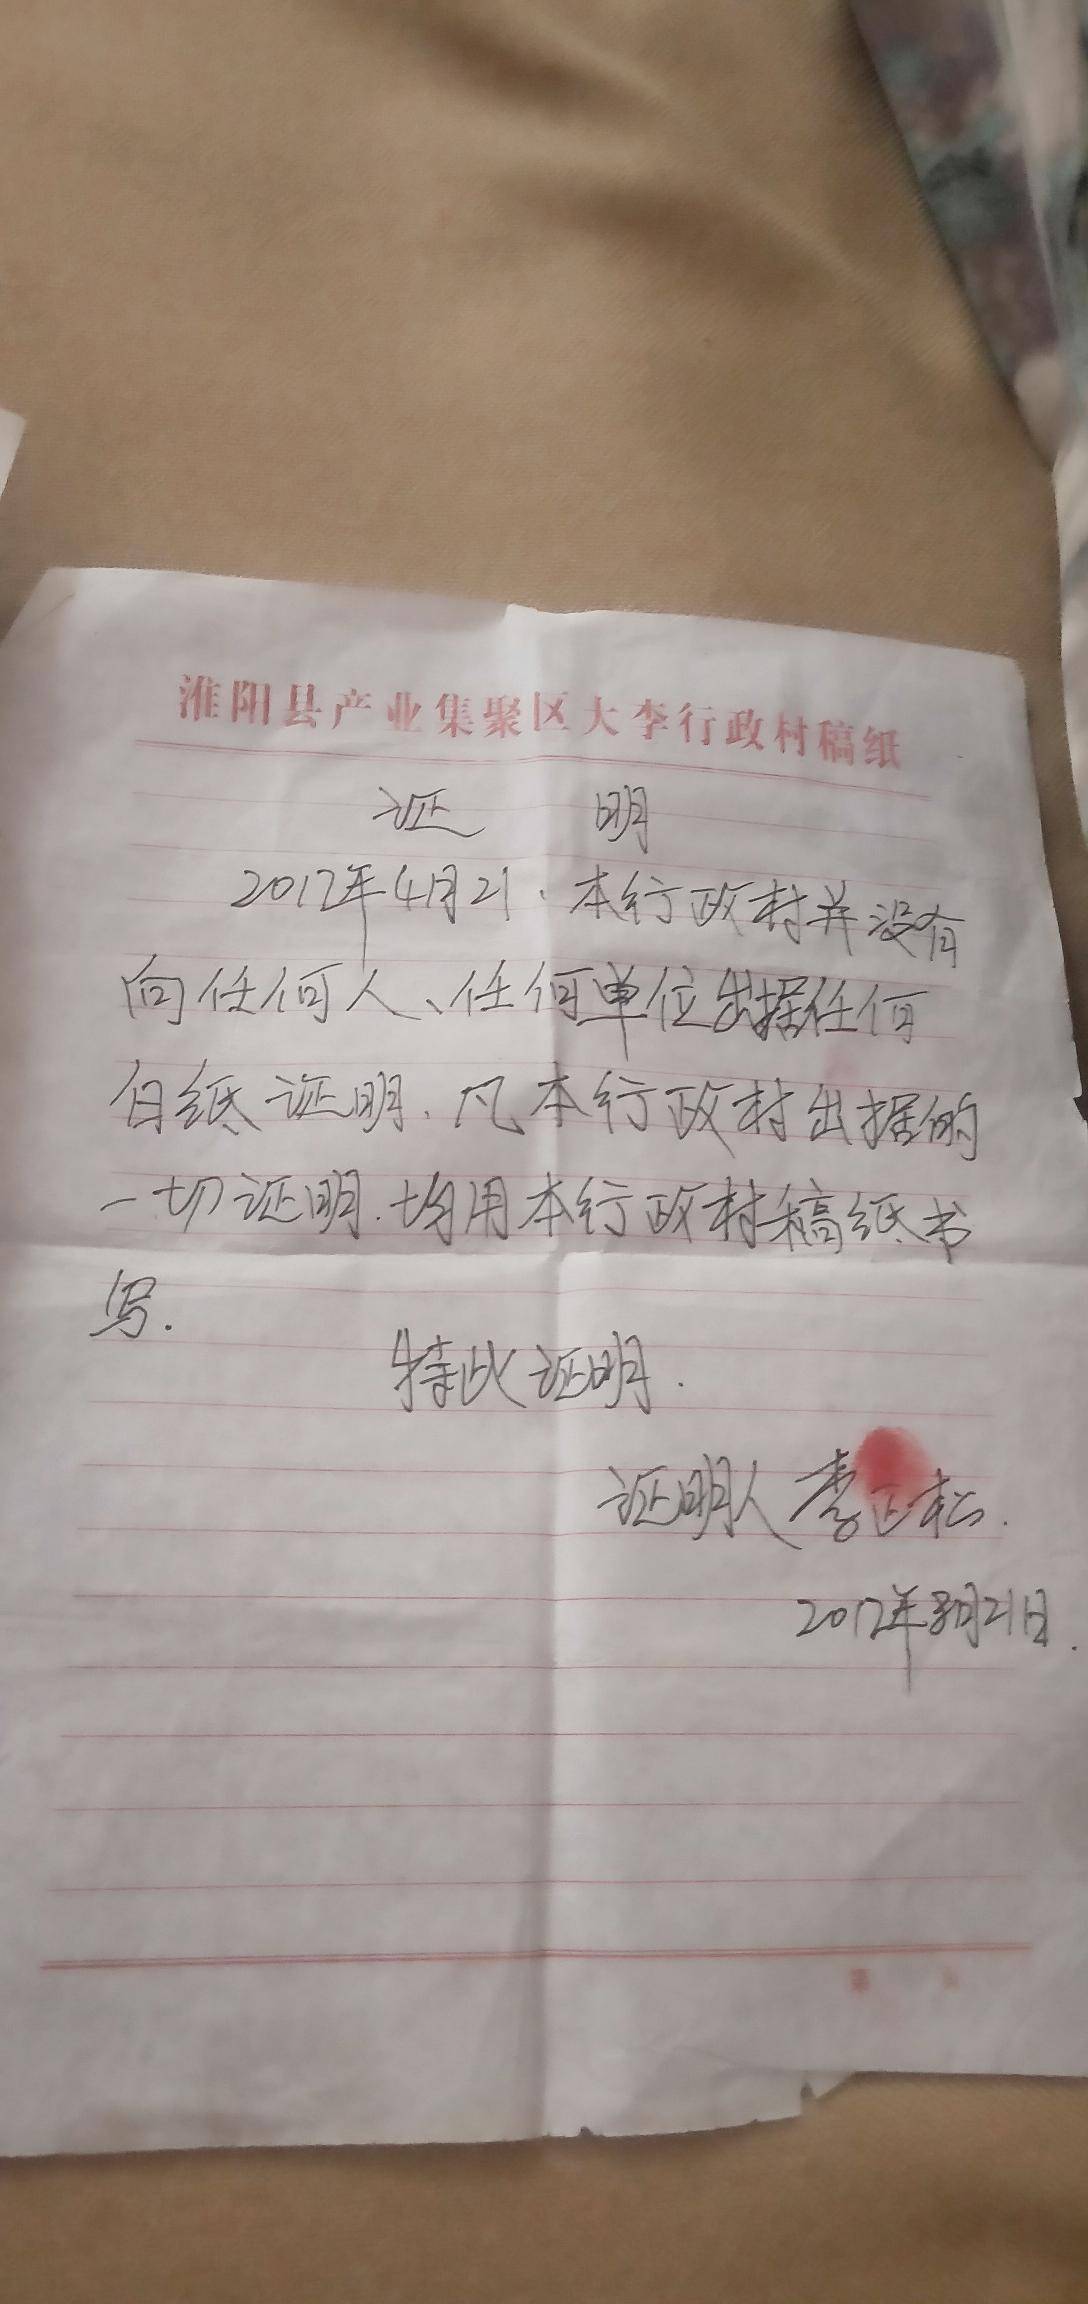 淮阳县产业集聚区大李行政村稿纸
证 明
2017年4月21.本行政村并没有
向任何人、任何单位出据任何
白纸证明.凡本行政村出据的
一切证明.均用本行政村稿纸书
写.
特此证明.
证明人 李正松.
2017年8月21日.
第 页